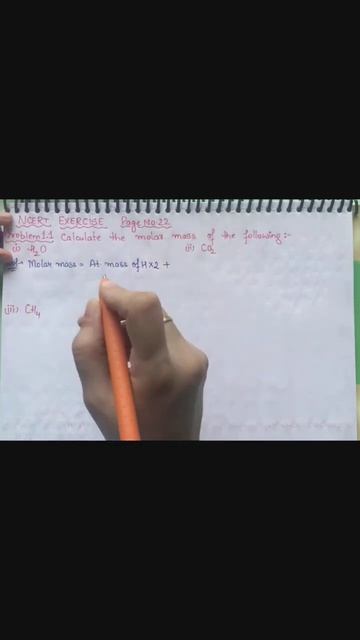 NCERT EXERCISE Page No. 22
Problem 1.1 Calculate the molar mass of the following :-
i) H₂O ii) CO₂
Sol:- Molar mass = At mass of H×2 +
iii) CH₄